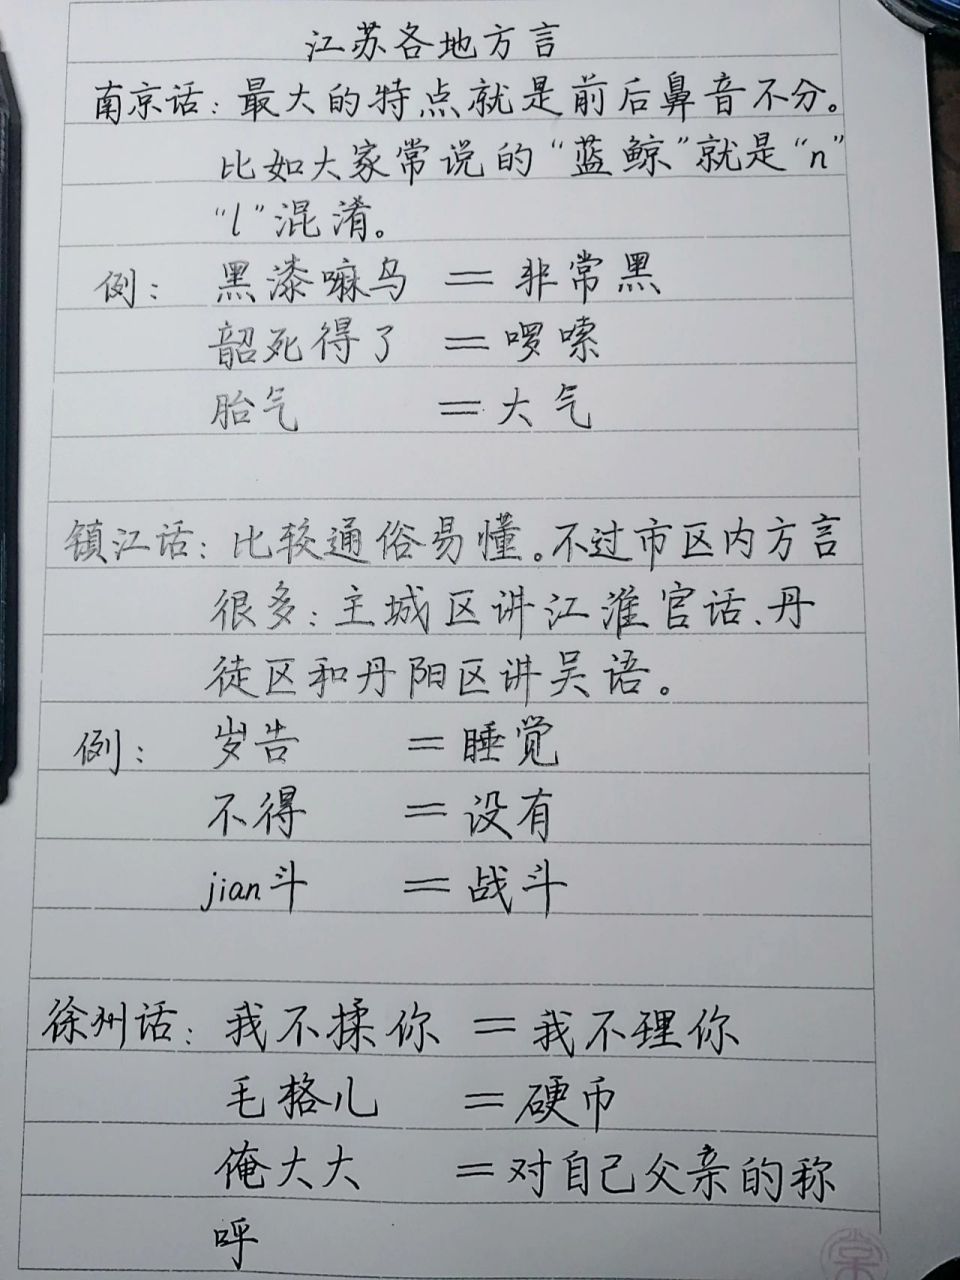 江苏各地方言
南京话：最大的特点就是前后鼻音不分。
比如大家常说的“蓝鲸”就是“n”
“l”混淆。
例：黑漆嘛乌 = 非常黑
韶死得了 = 啰嗦
胎气 = 大气
镇江话：比较通俗易懂。不过市区内方言
很多：主城区讲江淮官话、丹
徒区和丹阳区讲吴语。
例：岁告 = 睡觉
不得 = 没有
jian斗 = 战斗
徐州话：我不揉你 = 我不理你
毛格儿 = 硬币
俺大大 = 对自己父亲的称
呼
棠